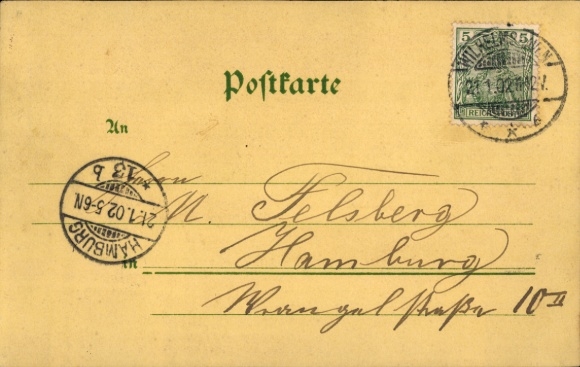 Postkarte
5 5
21.1.02
An
Herrn
M. Felsberg
in
Hamburg
Wrangelstraße 10 II
HAMBURG
21.1.02.5-6N.
*13 b